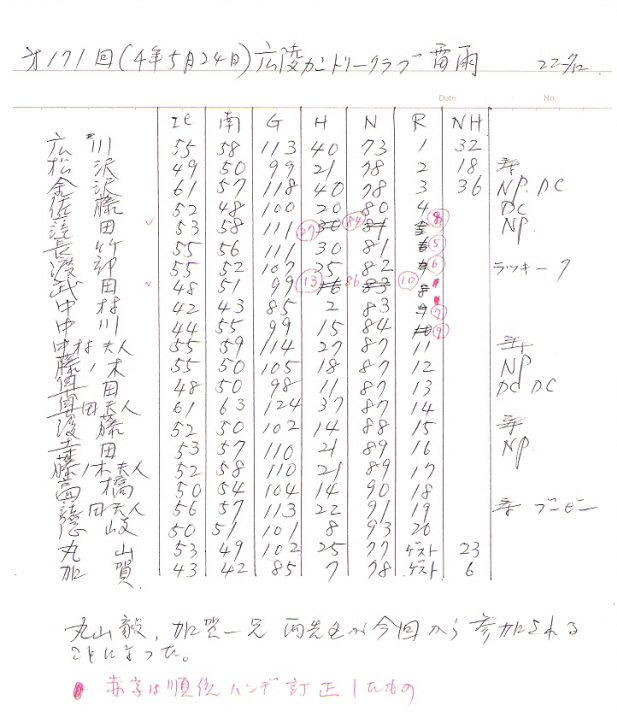 才171回(4年5月24日)広陵カントリークラブ 雷雨 22-9/12
Date No.
IC 南 G H N R NH
広川 55 58 113 40 73 1 32
松沢 49 50 99 21 78 2 18
金沢 61 57 118 40 78 3 36 NP. DC
佐藤 52 48 100 20 80 4 DC
田 53 58 111 27 84 8 NP.
長竹 55 56 111 30 81 5
渡部 55 52 107 25 82 6 ラッキー7
武田 48 51 99 13 86 10
中村 42 43 85 2 83 7
中川 44 55 99 15 84 9
中村夫人 55 59 114 27 87 11
藤ノ木 55 50 105 18 87 12 NP
田 48 50 98 11 87 13 DC DC
田夫人 61 63 124 37 87 14
後藤 52 50 102 14 88 15
土田 53 57 110 21 89 16 NP.
藤ノ木夫人 52 58 110 21 89 17
高橋 50 54 104 14 90 18
田夫人 56 57 113 22 91 19 ブービー
隠岐 50 51 101 8 93 20
丸山 53 49 102 25 77 ゲスト 23
加賀 43 42 85 7 78 ゲスト 6
丸山毅、加賀一兄 両先生が今回から参加される
ことになった。
赤字は順位ハンデ訂正したもの